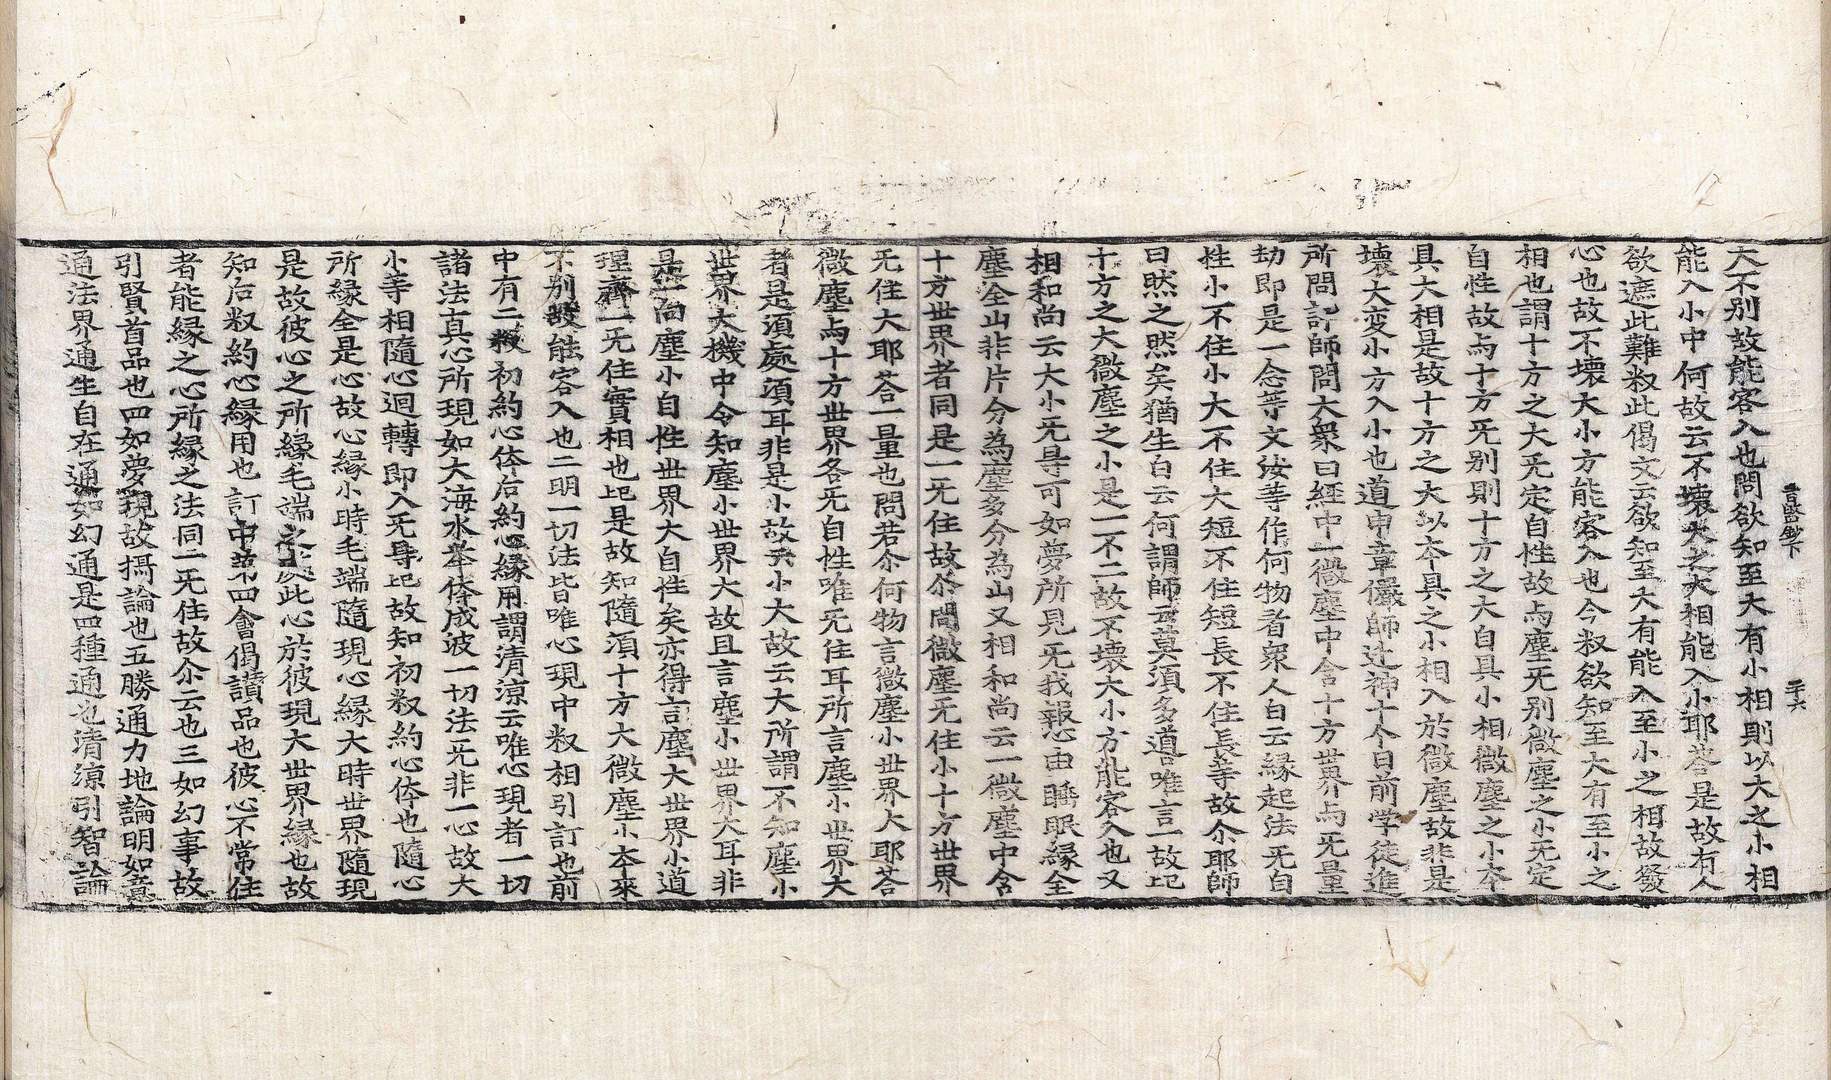 旨歸鈔下
二十六
大不別故能容入也問欲知至大有小相則以大之小相
能入小中何故云不壞大之大相能入小耶答是故有人
欲遮此難叙此偈文云欲知至大有能入至小之相故發
心也故不壞大小方能容入也今叙欲知至大有至小之
相也謂十方之大无定自性故与塵无別微塵之小无定
自性故与十方无別則十方之大自具小相微塵之小本
具大相是故十方之大以本具之小相入於微塵故非是
壞大変小方入小也道申章儼師辻神十个日前学徒進
所問訂師問大衆曰經中一微塵中含十方世界与无量
劫即是一念等文汝等作何物看衆人白云緣起法无自
性小不住小大不住大短不住短長不住長等故尒耶師
曰然之然矣猶生白云何謂師云莫湏多道唯言一故记
十方之大微塵之小是一不二故不壞大小方能容入也又
相和尚云大小无㝵可如夢所見无我報心由睡眠緣全
塵全山非片分為塵多分為山又相和尚云一微塵中含
十方世界者同是一无住故尒問微塵无住小十方世界
无住大耶答一量也問若尒何物言微塵小世界大耶答
微塵与十方世界各无自性唯无住耳所言塵小世界大
者是湏處湏耳非是小故云小大故云大所謂不知塵小
世界大機中令知塵小世界大故且言塵小世界大耳非
是尚塵小自性世界大自性矣亦得言塵大世界小道
理齊一无住實相也记是故知隨湏十方大微塵小本來
不別故能容入也二明一切法皆唯心現中叙相引訂也前
中有二叙初約心体后約心緣用謂清涼云唯心現者一切
諸法真心所現如大海水举体成波一切法无非一心故大
小等相隨心迴轉即入无㝵记故知初叙約心体也隨心
所緣全是心故心緣小時毛端隨現心緣大時世界隨現
是故彼心之所緣毛端之處此心於彼現大世界緣也故
知后叙約心緣用也訂中苐四會偈讃品也彼心不常住
者能緣之心所緣之法同一无住故尒云也三如幻事故
引賢首品也四如夢現故攝論也五勝通力地論明如意
通法界通生自在通如幻通是四種通也清涼引智論